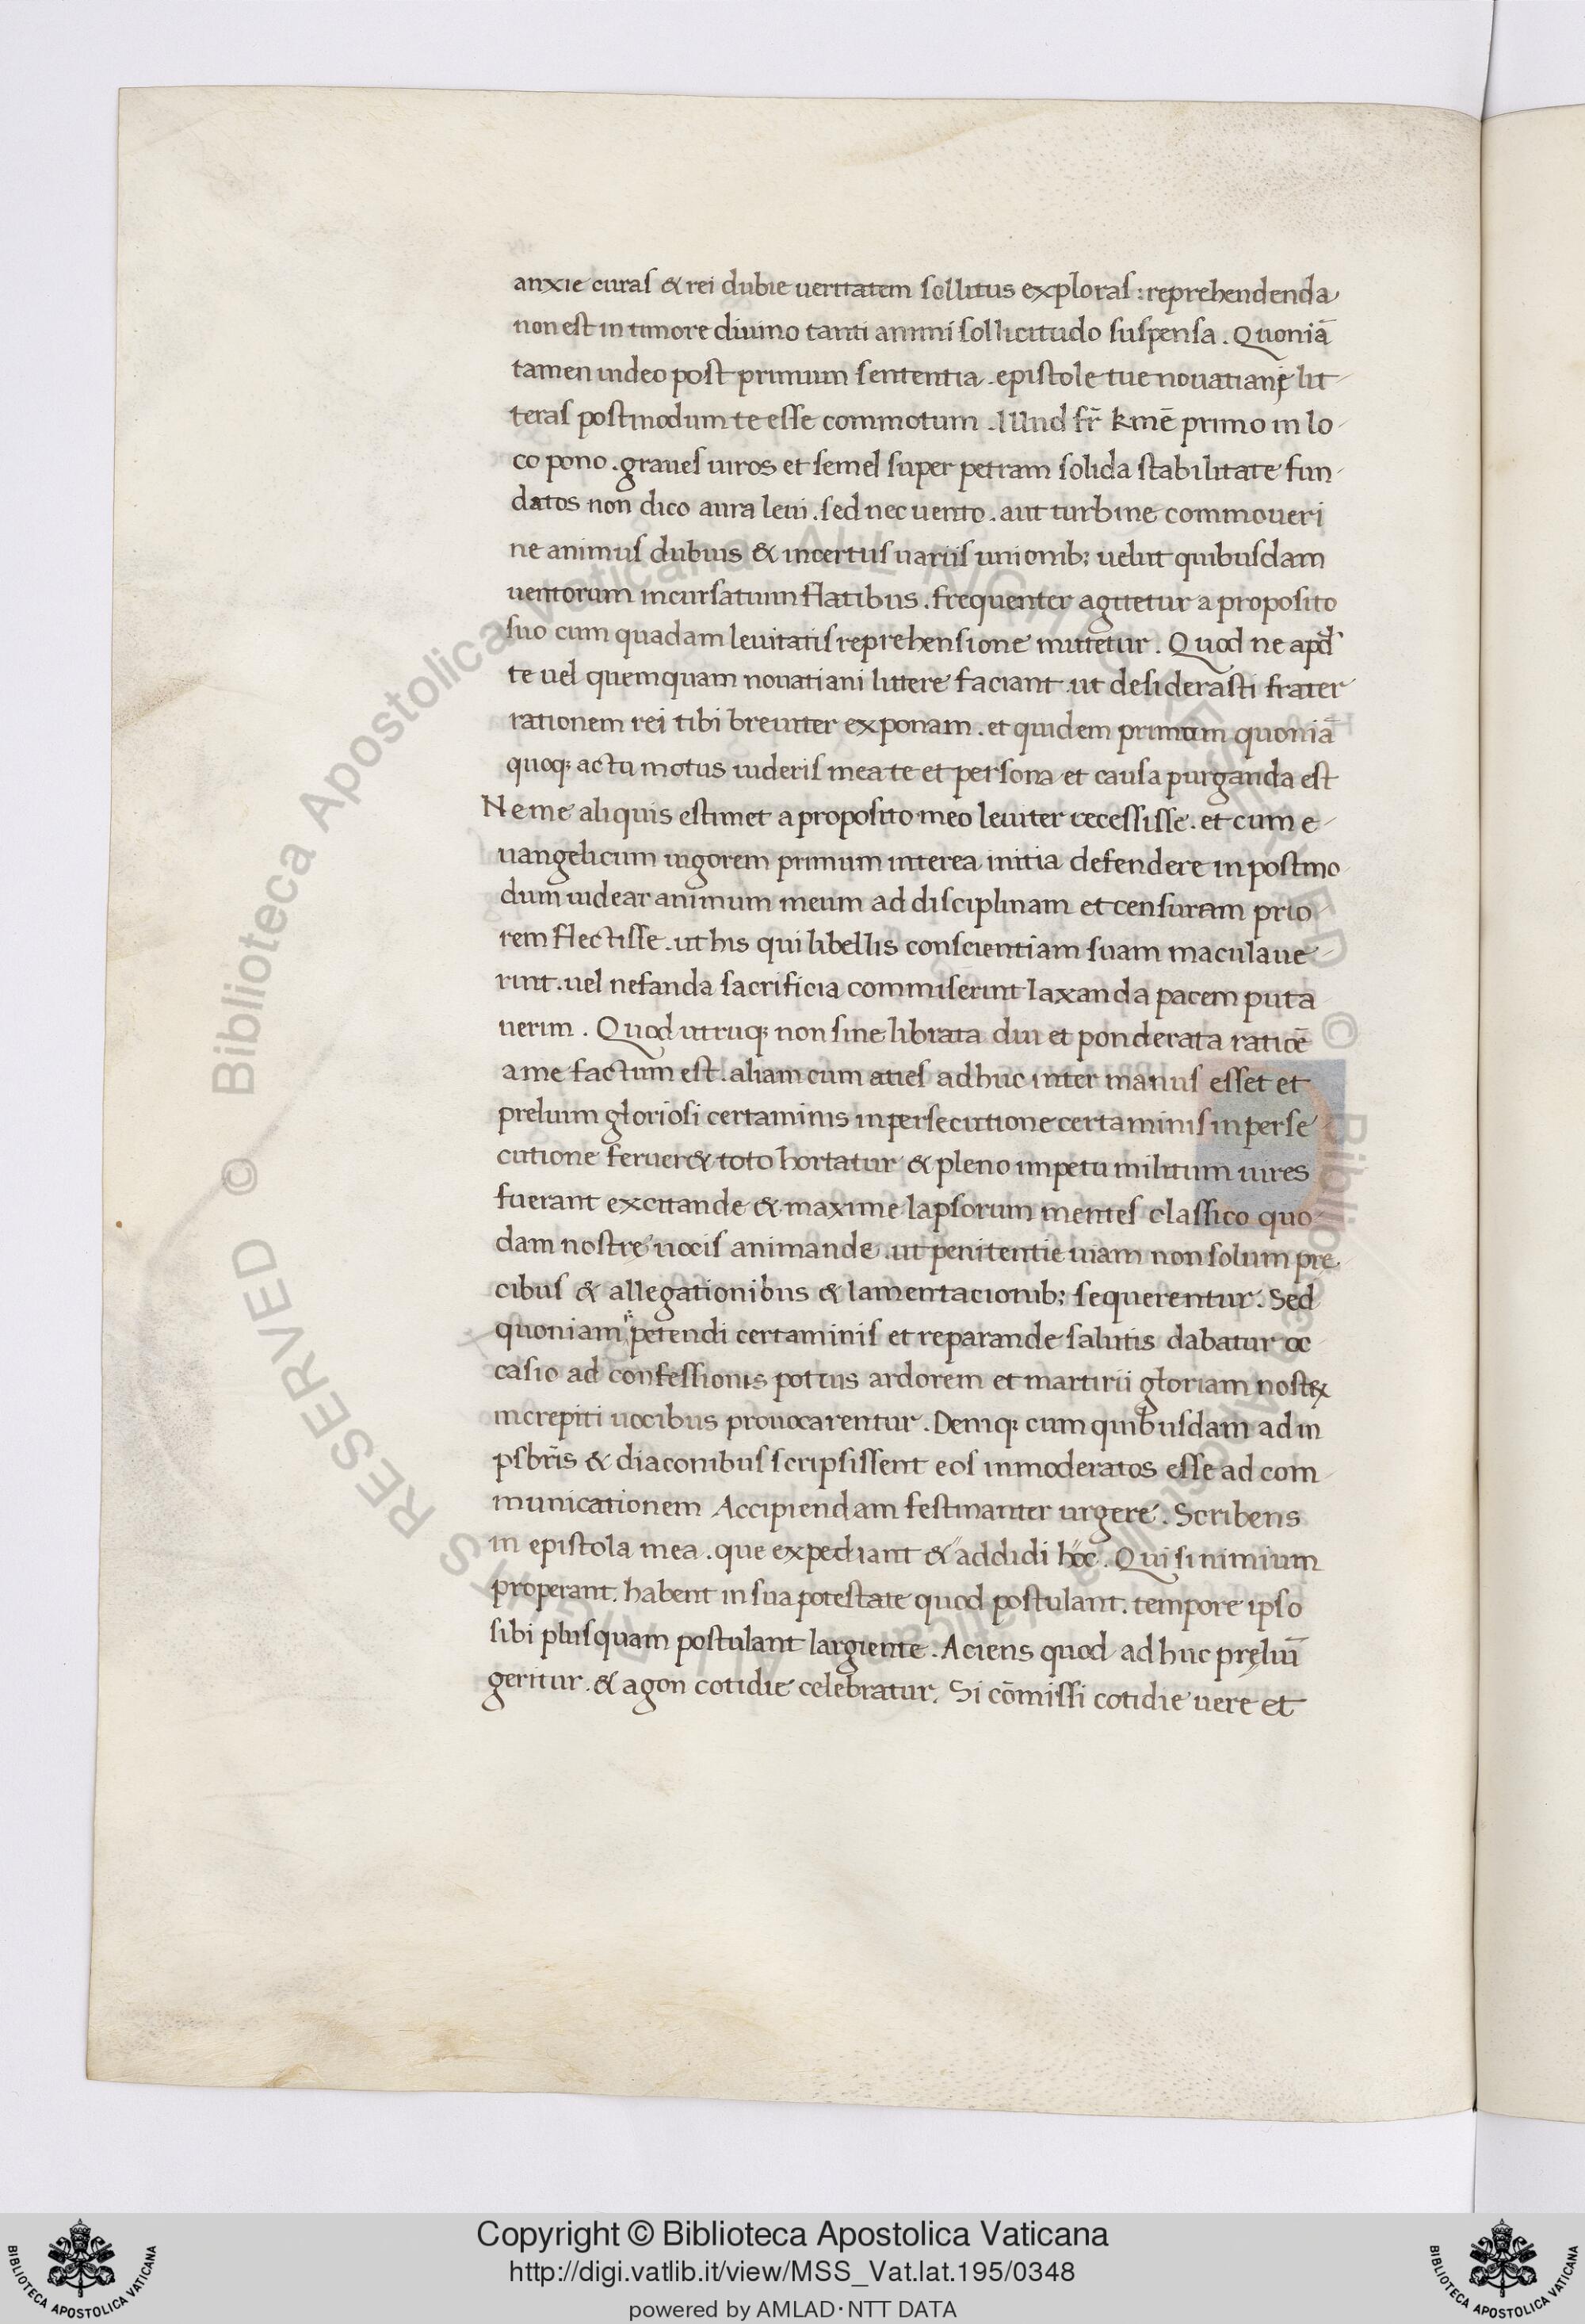 anxie curas & rei dubie ueritatem sollitus exploras: reprehendenda
non est in timore diuino tanti animi sollicitudo suspensa. Quoniā
tamen uideo post primum sententia. epistole tue nouatiani lit-
teras postmodum te esse commotum. Illud fr̄ kmē primo in lo-
co pono. graues uiros et semel super petram solida stabilitate fun-
datos non dico aura leui. sed nec uento. aut turbine commoueri
ne animus dubius & incertus uariis unionib; uelut quibusdam
uentorum incursatuim flatibus. frequenter agitetur a proposito
suo cum quadam leuitatis reprehensione mutetur. Quod ne apd̓
te uel quemquam nouatiani littere faciant. ut desiderasti frater
rationem rei tibi breuiter exponam. et quidem primum quoniā
quoq; actu motus uideris mea te et persona et causa purganda est
Ne me aliquis estimet a proposito meo leuiter recessisse. et cum e-
uangelicum uigorem primum interea initia defendere in postmo
dum uidear animum meum ad disciplinam et censuram prio-
rem flectisse. ut his qui libellis conscientiam suam maculaue-
rint. uel nefanda sacrificia commiserint laxanda pacem puta
uerim. Quod utruq; non sine librata diu et ponderata ratiōē
a me factum est. aliam cum aties adhuc inter manus esset et
preluim gloriosi certaminis in persecutione certaminis in perse-
cutione feruer& toto hortatur & pleno impetu militum uires
fuerant excitande & maxime lapsorum mentes classico quo-
dam nostre uocis animande. ut penitentie uiam non solum pre-
cibus & allegationibus & lamentacionib; sequerentur. Sed
quoniam petendi certaminis et reparande salutis dabatur oc-
casio ad confessionis potius ardorem et martirii gloriam nostrꝝ
increpiti uocibus prouocarentur. Deniq; cum quibusdam ad in
psbr̄is & diaconibus scripsissent eos inmoderatos esse ad com-
municationem Accipiendam festinanter urgere. Scribens
in epistola mea. que expediant & addidi hoc. Qui si nimium
properant. habent in sua potestate quod postulant. tempore ipso
sibi plusquam postulant largiente. Aciens quod adhuc pręluī
geritur. & agon cotidie celebratur. Si cōmissi cotidie uere et
Copyright © Biblioteca Apostolica Vaticana
http://digi.vatlib.it/view/MSS_Vat.lat.195/0348
powered by AMLAD·NTT DATA
BIBLIOTECA APOSTOLICA VATICANA
BIBLIOTECA APOSTOLICA VATICANA